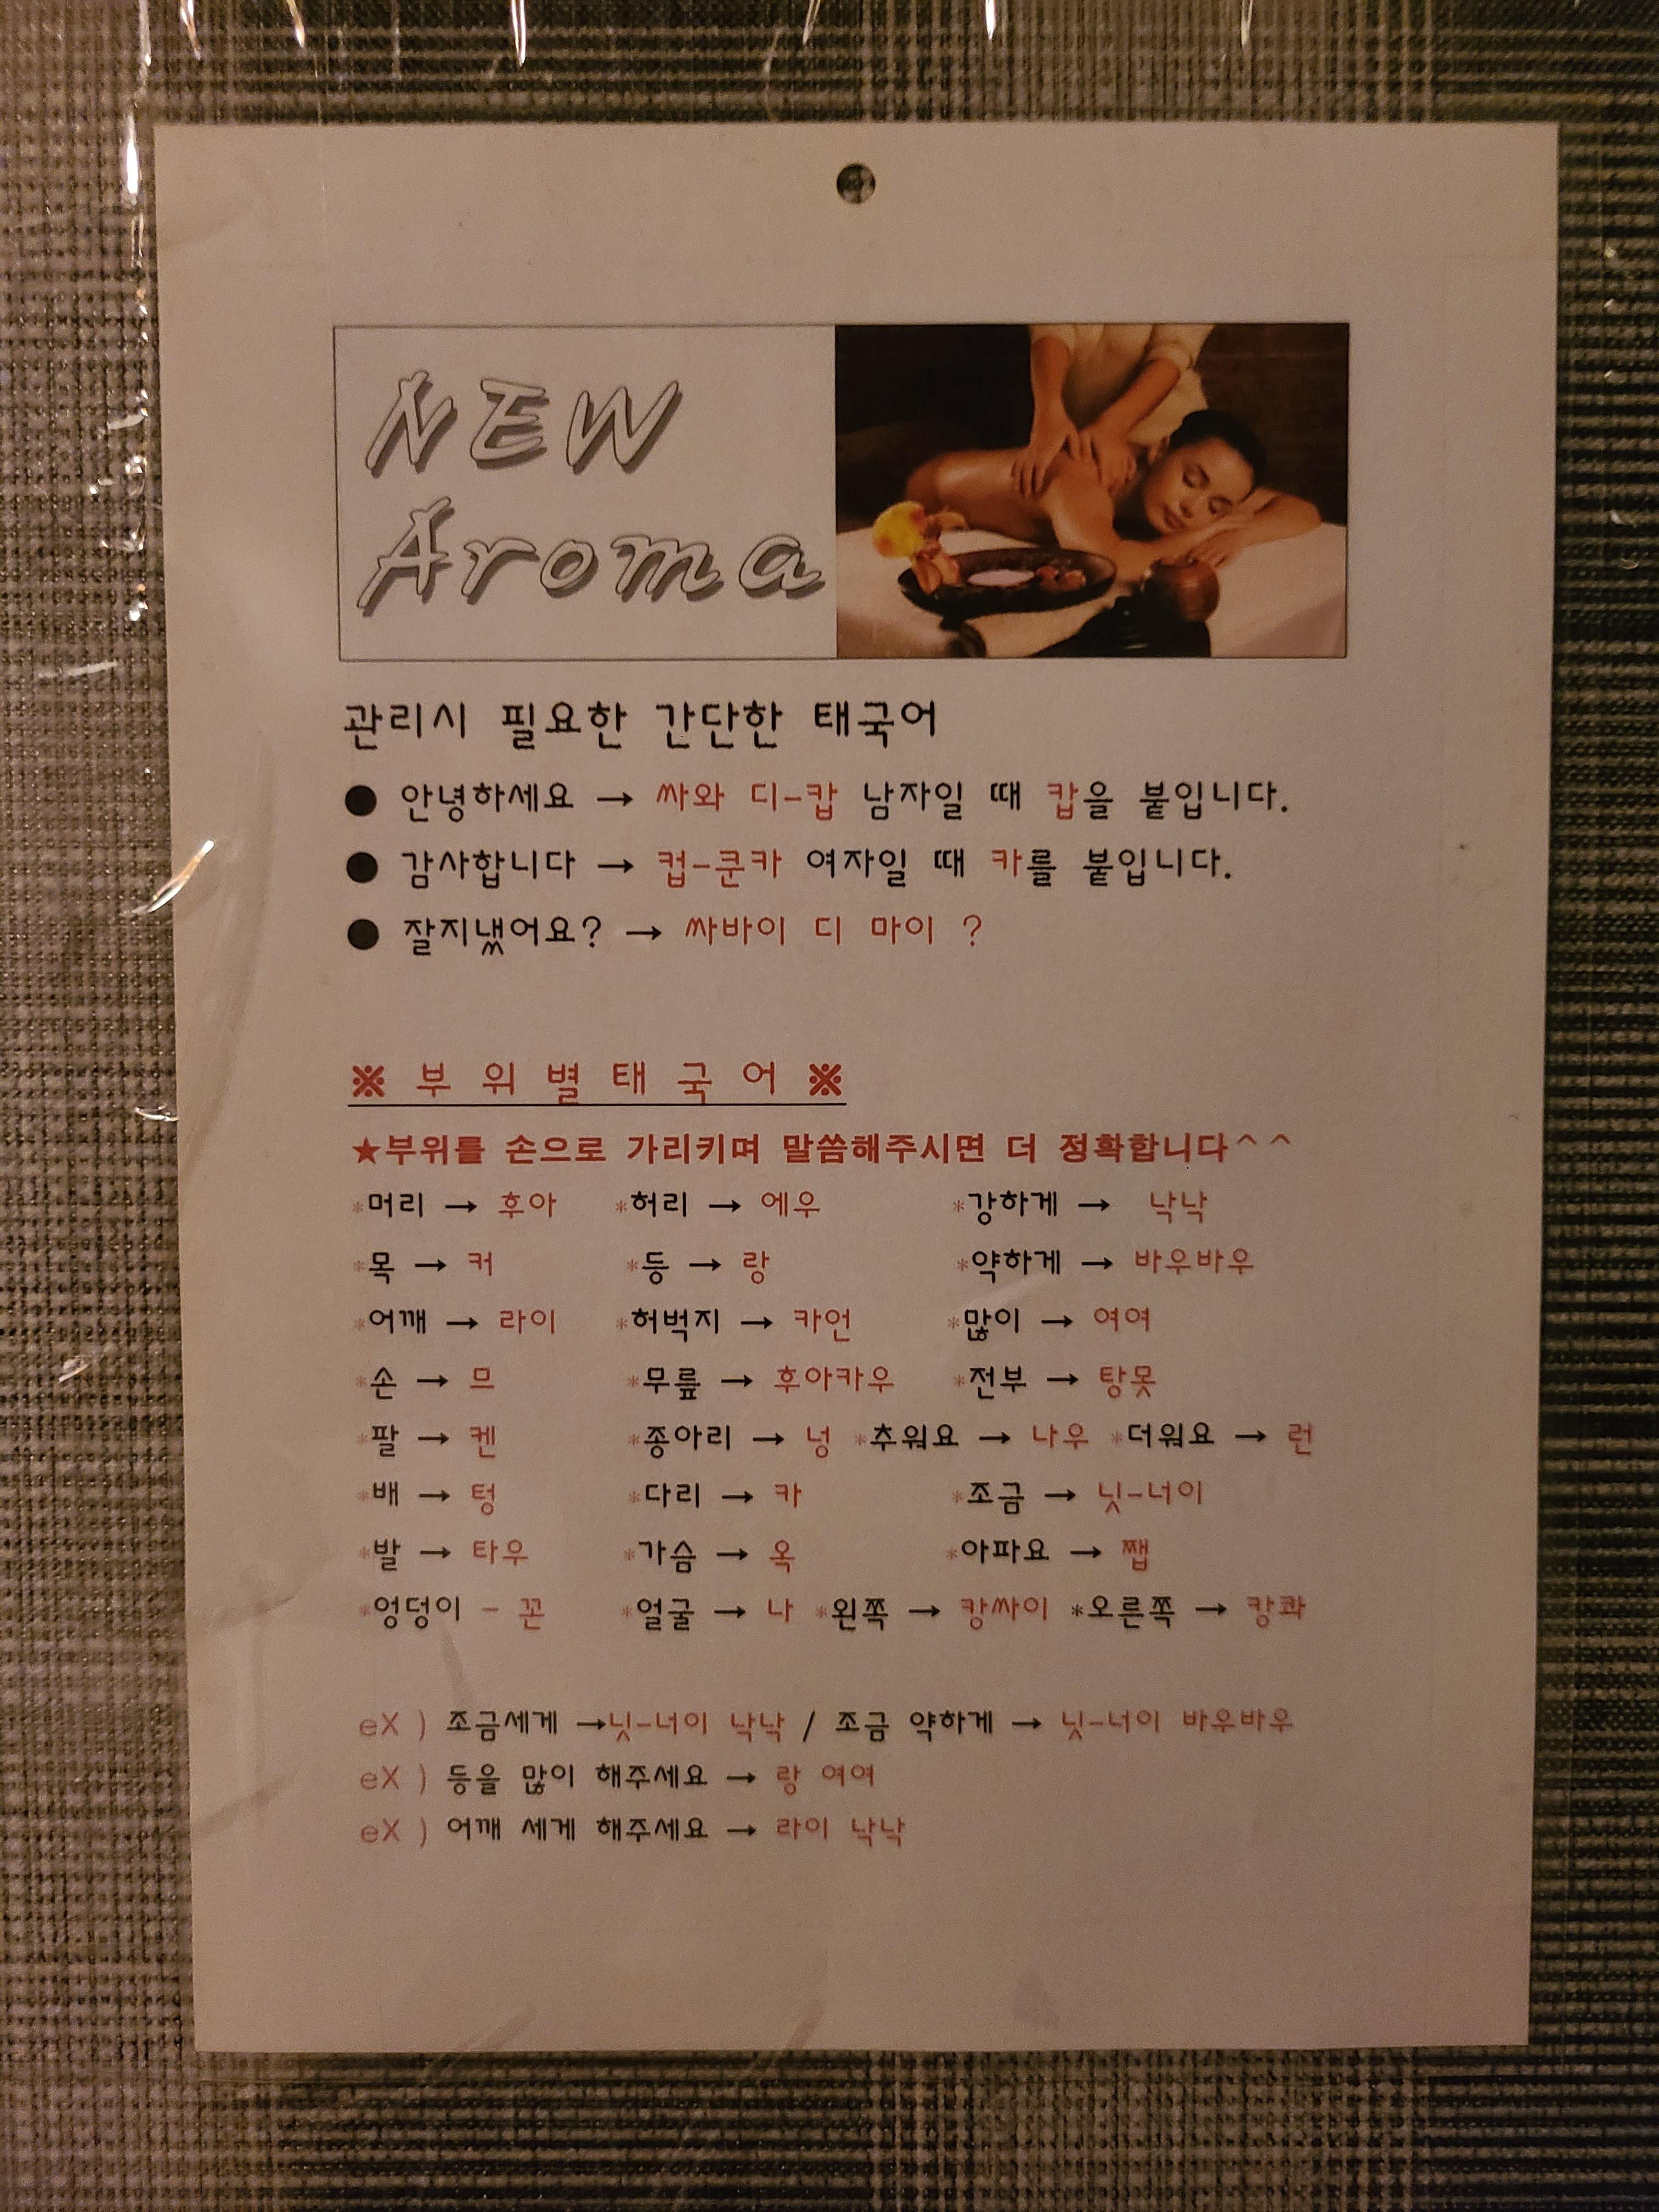 NEW
Aroma
관리시 필요한 간단한 태국어
● 안녕하세요 → 싸와 디-캅 남자일 때 캅을 붙입니다.
● 감사합니다 → 컵-쿤카 여자일 때 카를 붙입니다.
● 잘지냈어요? → 싸바이 디 마이 ?
※ 부 위 별 태 국 어 ※
★부위를 손으로 가리키며 말씀해주시면 더 정확합니다^^
*머리 → 후아 *허리 → 에우 *강하게 → 낙낙
*목 → 커 *등 → 랑 *약하게 → 바우바우
*어깨 → 라이 *허벅지 → 카언 *많이 → 여여
*손 → 므 *무릎 → 후아카우 *전부 → 탕못
*팔 → 켄 *종아리 → 넝 *추워요 → 나우 *더워요 → 런
*배 → 텅 *다리 → 카 *조금 → 닛-너이
*발 → 타우 *가슴 → 옥 *아파요 → 쨉
*엉덩이 - 꼰 *얼굴 → 나 *왼쪽 → 캉싸이 *오른쪽 → 캉콰
eX ) 조금세게 →닛-너이 낙낙 / 조금 약하게 → 닛-너이 바우바우
eX ) 등을 많이 해주세요 → 랑 여여
eX ) 어깨 세게 해주세요 → 라이 낙낙